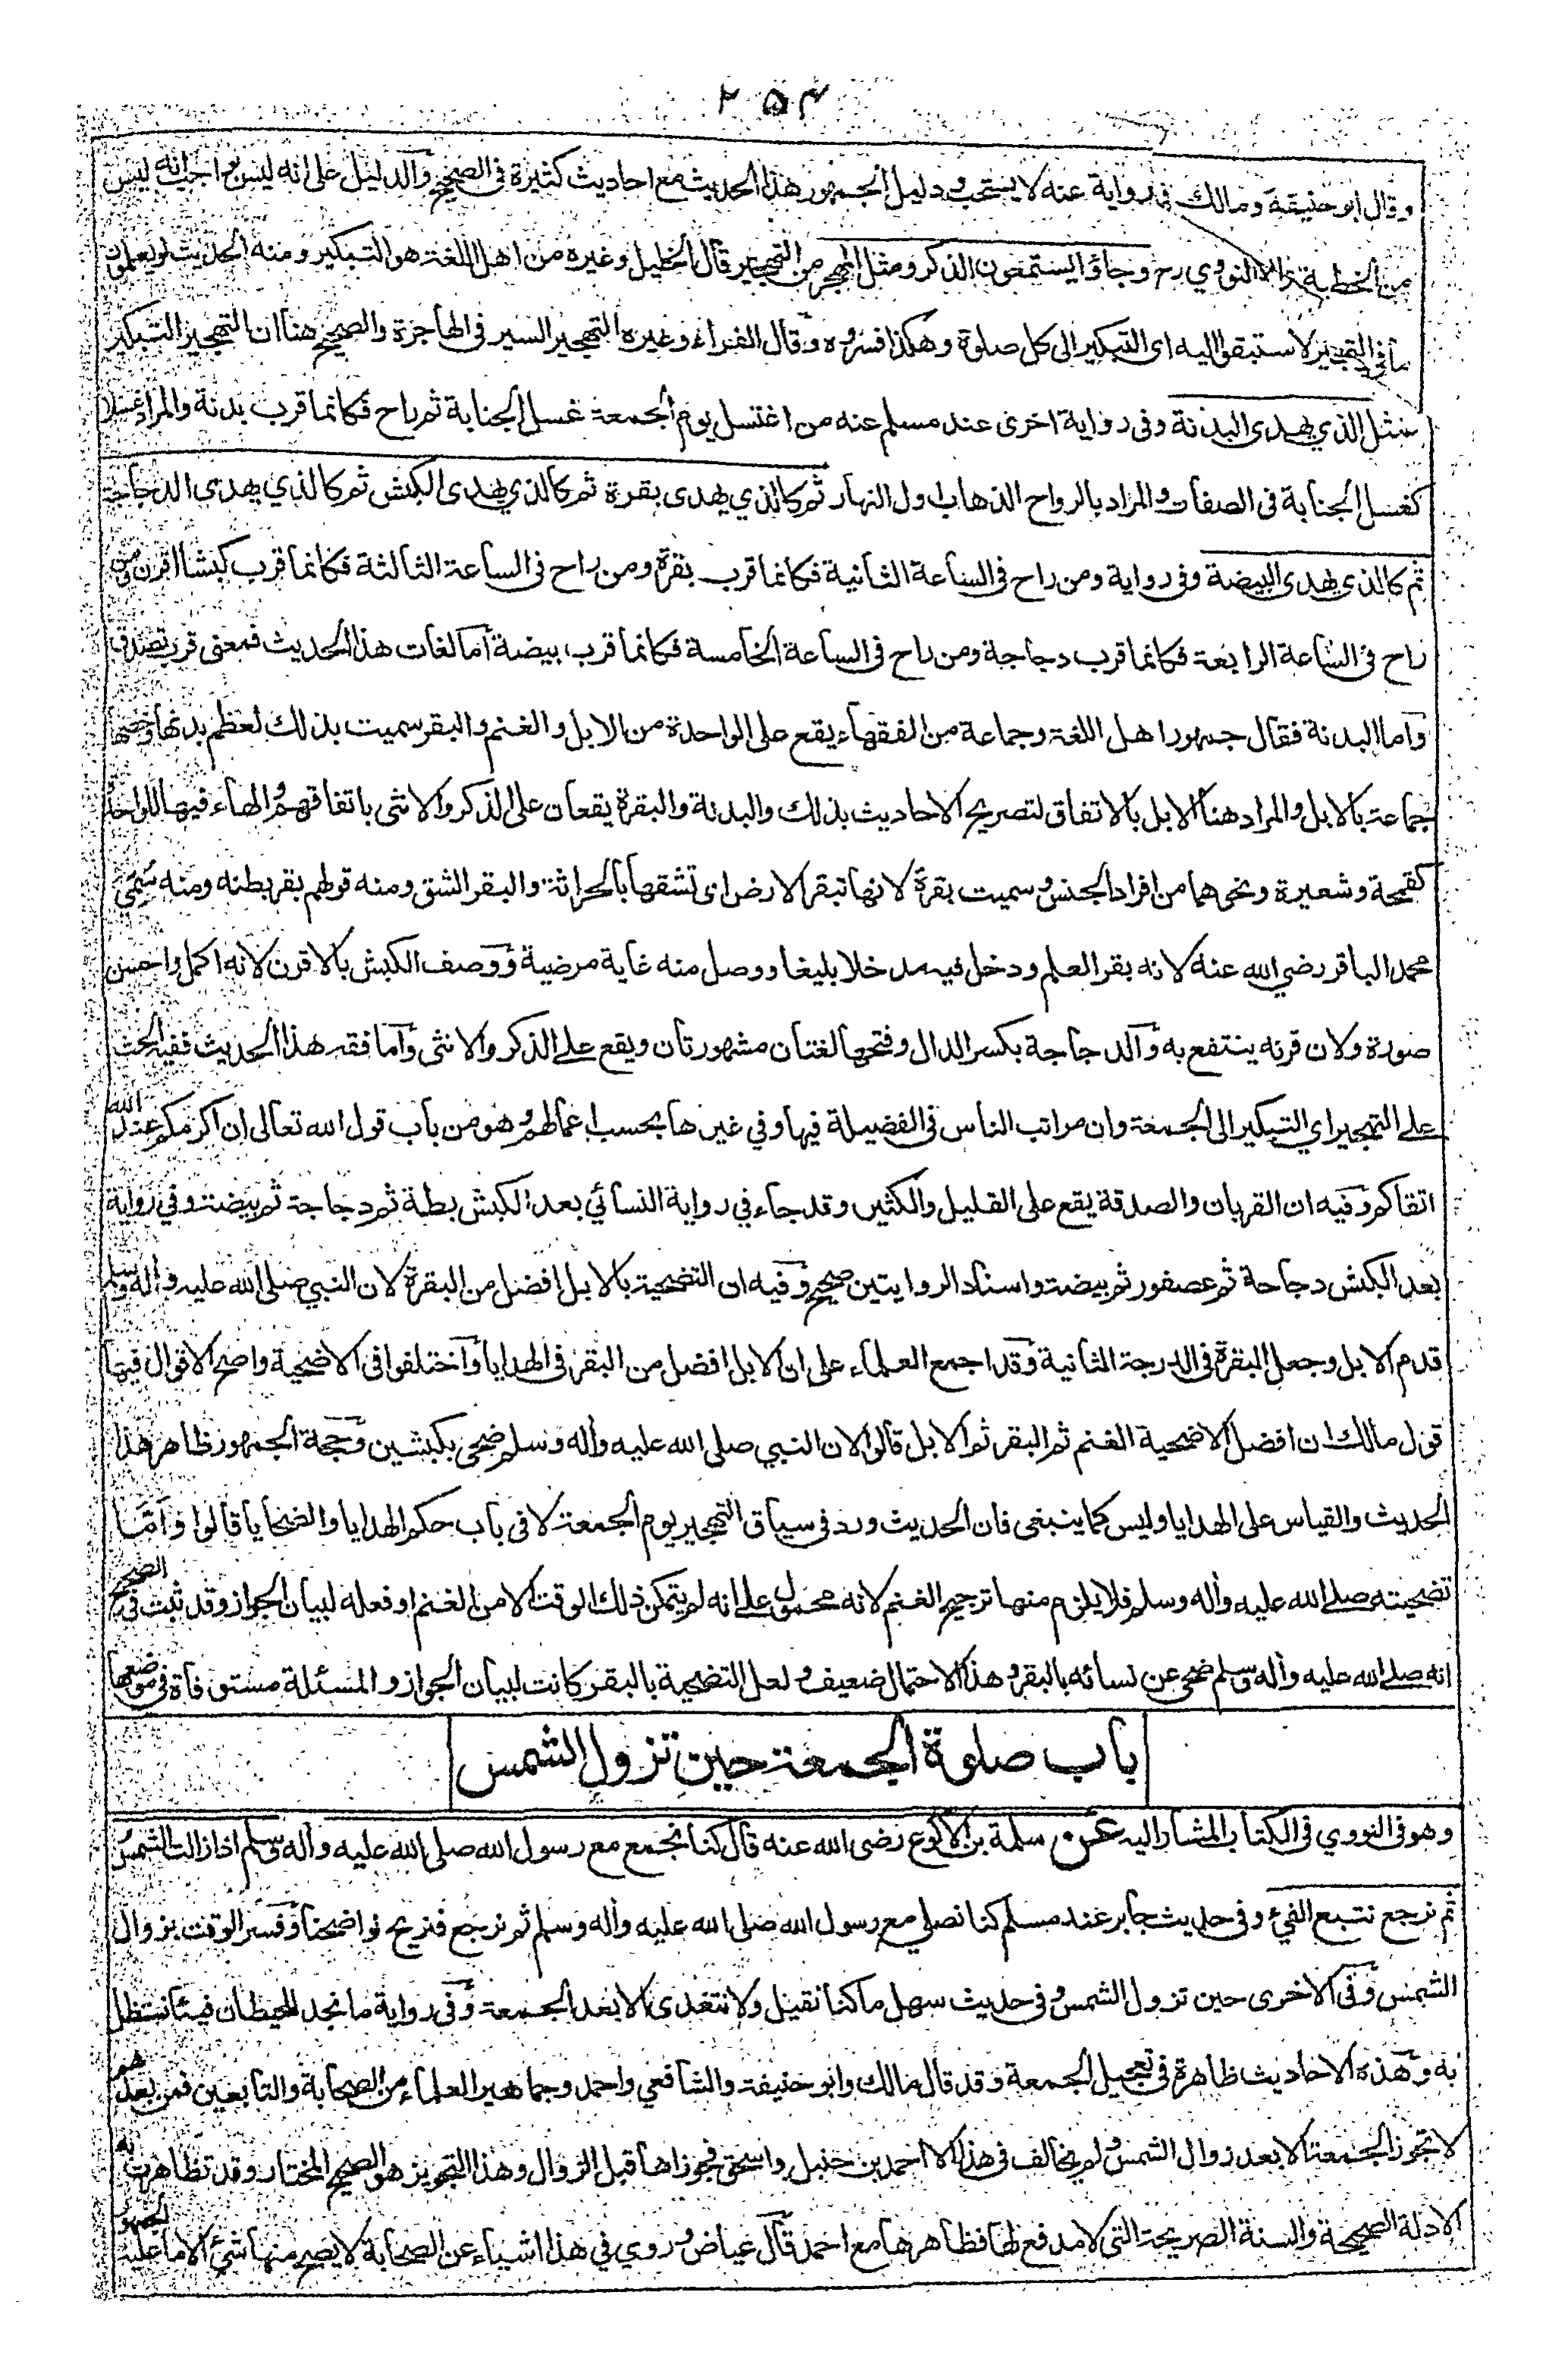 ۲۵۴
وقال ابو حنيفة ومالك في رواية عنه لا يستحب ودليل الجمهور هذا الحديث مع احاديث كثيرة في الصحيح والدليل على انه ليس بواجب انه ليس
من الخطبة قاله النووي رح وجاؤا يستمعون الذكر ومثل المهجر من التهجير قال الخليل وغيره من اهل اللغة هو التبكير ومنه الحديث لو يعلمون
ما في التهجير لاستبقوا اليه اى التبكير الى كل صلوة وهكذا فسروه وقال الفراء وغيره التهجير السير في الهاجرة والصحيح هنا ان التهجير التبكير
كمثل الذي يهدى البدنة وفي رواية اخرى عند مسلم عنه من اغتسل يوم الجمعة غسل الجنابة ثم راح فكانما قرب بدنة والمراد غسلا
كغسل الجنابة في الصفات والمراد بالرواح الذهاب اول النهار ثم كالذي يهدى بقرة ثم كالذي يهدى الكبش ثم كالذي يهدى الدجاجة
ثم كالذى يهدى البيضة وفي رواية ومن راح في الساعة الثانية فكانما قرب بقرة ومن راح في الساعة الثالثة فكانما قرب كبشا اقرن ومن
راح في الساعة الرابعة فكانما قرب دجاجة ومن راح في الساعة الخامسة فكانما قرب بيضة اما لغات هذا الحديث فمعنى قرب تصدق
واما البدنة فقال جمهور اهل اللغة وجماعة من الفقهاء يقع على الواحدة من الابل والغنم والبقر سميت بذلك لعظم بدنها وخصها
جماعة بالابل والمراد هنا الابل بالاتفاق لتصريح الاحاديث بذلك والبدنة والبقرة يقعان على الذكر والانثى باتفاقهم والهاء فيها للواحد
كقمحة وشعيرة ونحوهما من افراد الجنس وسميت بقرة لانها تبقر الارض اى تشقها بالحراثة والبقر الشق ومنه قولهم بقر بطنه ومنه سُمّيَ
محمد الباقر رضي الله عنه لانه بقر العلم ودخل فيه مدخلا بليغا ووصل منه غاية مرضية ووصف الكبش بالاقرن لانه اكمل واحسن
صورة ولان قرنه ينتفع به والدجاجة بكسر الدال وفتحها لغتان مشهورتان ويقع على الذكر والانثى واما فقه هذا الحديث ففيه الحث
على التهجير اي التبكير الى الجمعة وان مراتب الناس في الفضيلة فيها وفي غيرها بحسب اعمالهم وهو من باب قول الله تعالى ان اكرمكم عند الله
اتقاكم وفيه ان القربان والصدقة يقع على القليل والكثير وقد جاء في رواية النسائي بعد الكبش بطة ثم دجاجة ثم بيضة وفي رواية
بعد الكبش دجاجة ثم عصفور ثم بيضة واسناد الروايتين صحيح وفيه ان التضحية بالابل افضل من البقرة لان النبي صلى الله عليه واله وسلم
قدم الابل وجعل البقرة في الدرجة الثانية وقد اجمع العلماء على ان الابل افضل من البقر في الهدايا واختلفوا في الاضحية واصح الاقوال فيها
قول مالك ان افضل الاضحية الغنم ثم البقر ثم الابل قالوا لان النبي صلى الله عليه وأله وسلم ضحى بكبشين وحجة الجمهور ظاهر هذا
الحديث والقياس على الهدايا وليس كما ينبغى فان الحديث ورد في سياق التهجير يوم الجمعة لا في باب حكم الهدايا والضحايا قالوا وامّا
تضحيته صلى الله عليه وأله وسلم فلا يلزم منها ترجيح الغنم لانه محمول على انه لم يتمكن ذلك الوقت الا من الغنم او فعله لبيان الجواز وقد ثبت في الصحيح
انه صلى الله عليه وأله وسلم ضحى عن نسائه بالبقر وهذا الاحتمال ضعيف ولعل التضحية بالبقر كانت لبيان الجواز والمسئلة مستوفاة في موضعها
باب صلوة الجمعة حين تزول الشمس
وهو في النووي في الكتاب المشار اليه عن سلمة بن الاكوع رضى الله عنه قال كنا نجمع مع رسول الله صلى الله عليه وأله وسلم اذا زالت الشمس
ثم نرجع نتتبع الفيء وفي حديث جابر عند مسلم كنا نصلي مع رسول الله صلى الله عليه وأله وسلم ثم نرجع فنريح نواضحنا وفسر الوقت بزوال
الشمس وفى الاخرى حين تزول الشمس وفي حديث سهل ما كنا نقيل ولا نتغدى الا بعد الجمعة وفي رواية ما نجد للحيطان فيئا نستظل
به وهذه الاحاديث ظاهرة في تعجيل الجمعة وقد قال مالك وابو حنيفة والشافعي واحمد وجماهير العلماء من الصحابة والتابعين فمن بعدهم
لا تجوز الجمعة الا بعد زوال الشمس ولم يخالف في هذا الا احمد بن حنبل واسحق فجوزاها قبل الزوال وهذا التجويز هو الصحيح المختار وقد تظاهرت به
الادلة الصحيحة والسنة الصريحة التى لا مدفع لها فظاهرها مع احمد قال عياض وروي في هذا اشياء عن الصحابة لا يصح منها شئ الا ما عليه الجمهور